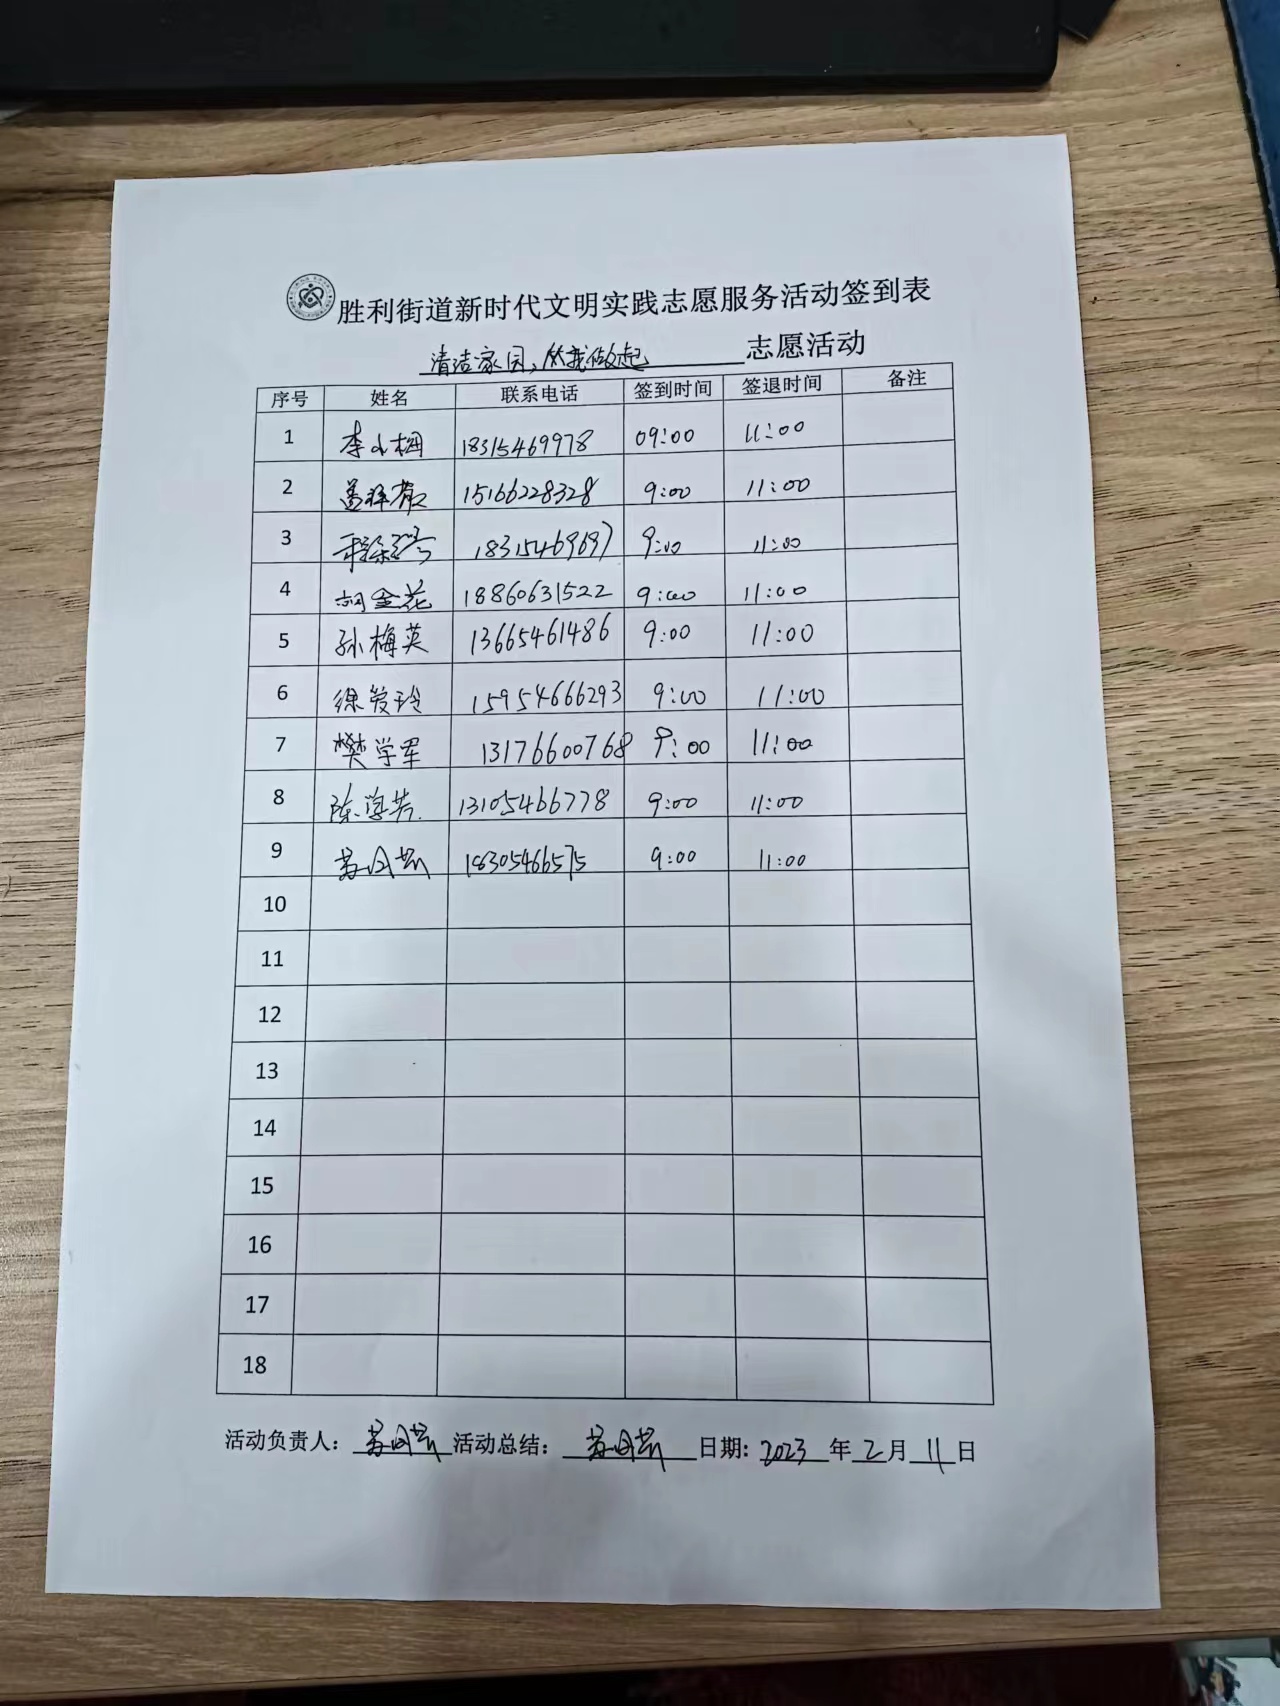 胜利街道新时代文明实践志愿服务活动签到表
清洁家园,从我做起 志愿活动
序号 姓名 联系电话 签到时间 签退时间 备注
1 李小梅 18315469978 09:00 11:00
2 15166228328 9:00 11:00
3 18315469697 9:00 11:00
4 胡金花 18860631522 9:00 11:00
5 孙梅英 13665461486 9:00 11:00
6 徐爱玲 15954666293 9:00 11:00
7 樊学军 13176600768 9:00 11:00
8 陈学芳 13105466778 9:00 11:00
9 18305466575 9:00 11:00
10
11
12
13
14
15
16
17
18
活动负责人: 活动总结: 日期: 2023 年 2 月 11 日